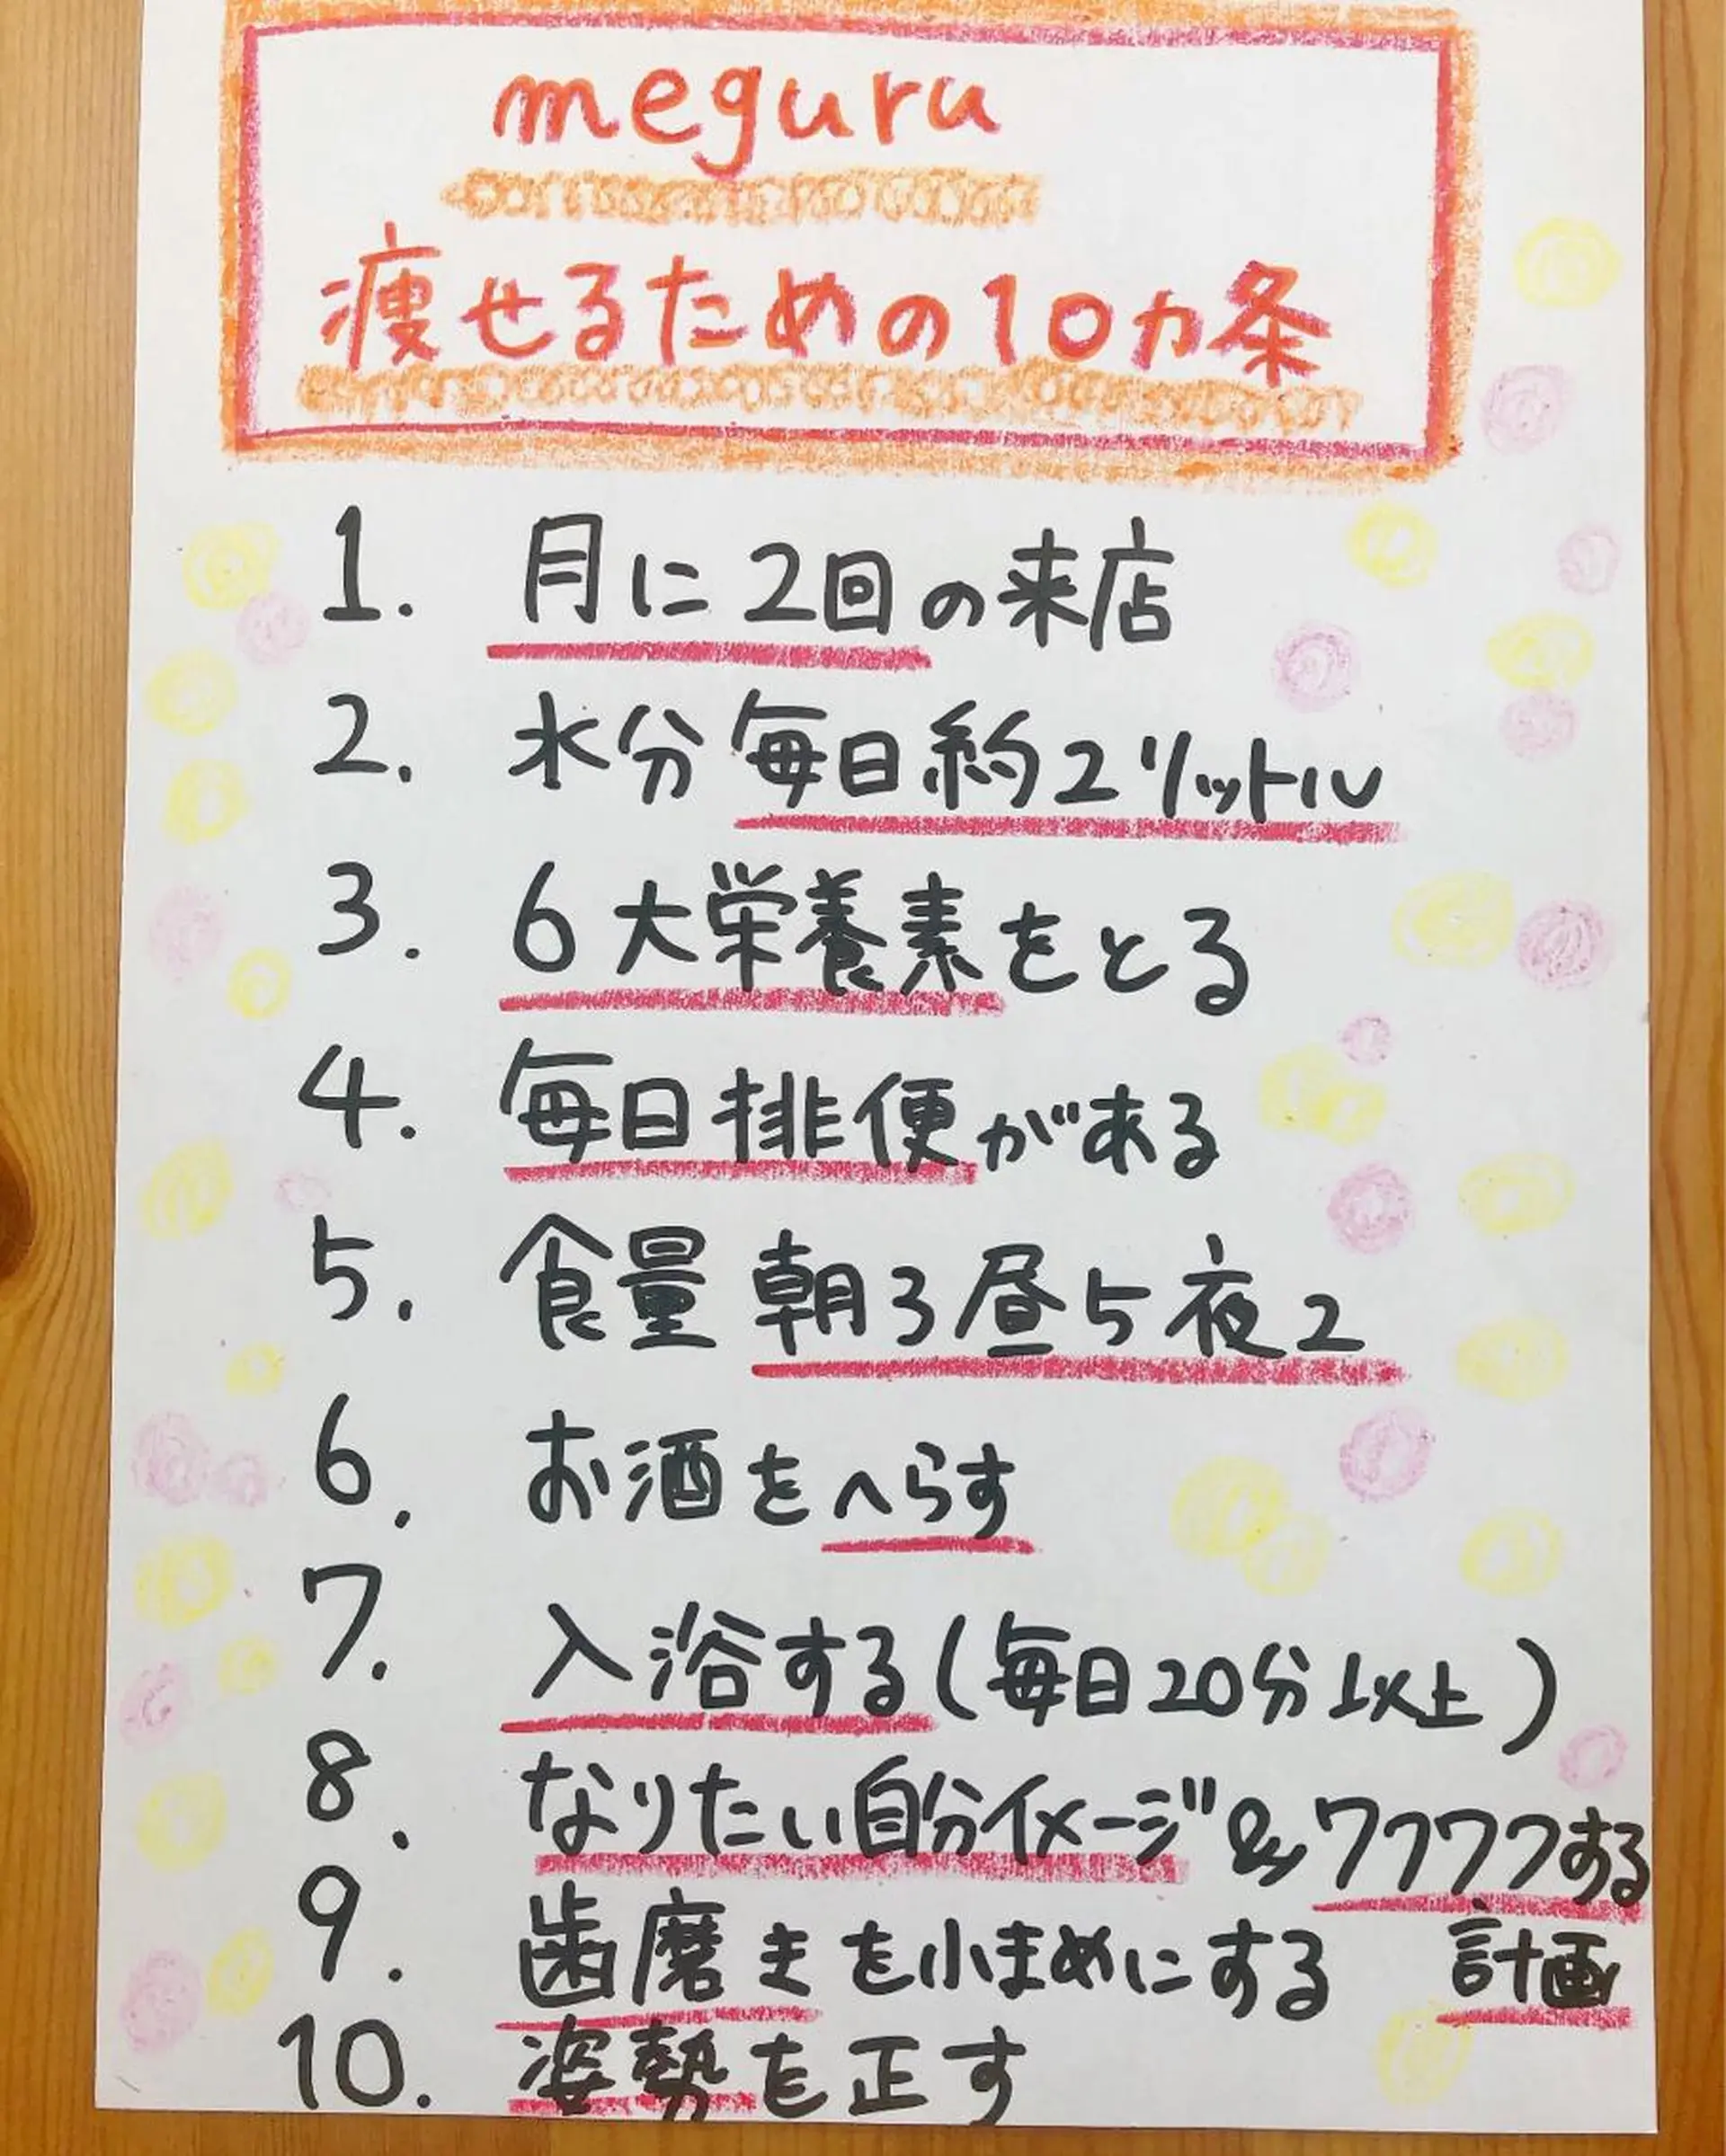 meguru
痩せるための10カ条
1. 月に2回の来店
2. 水分毎日約2リットル
3. 6大栄養素をとる
4. 毎日排便がある
5. 食量 朝3昼5夜2
6. お酒をへらす
7. 入浴する(毎日20分以上)
8. なりたい自分イメージ&ワクワクする
計画
9. 歯磨きを小まめにする
10. 姿勢を正す